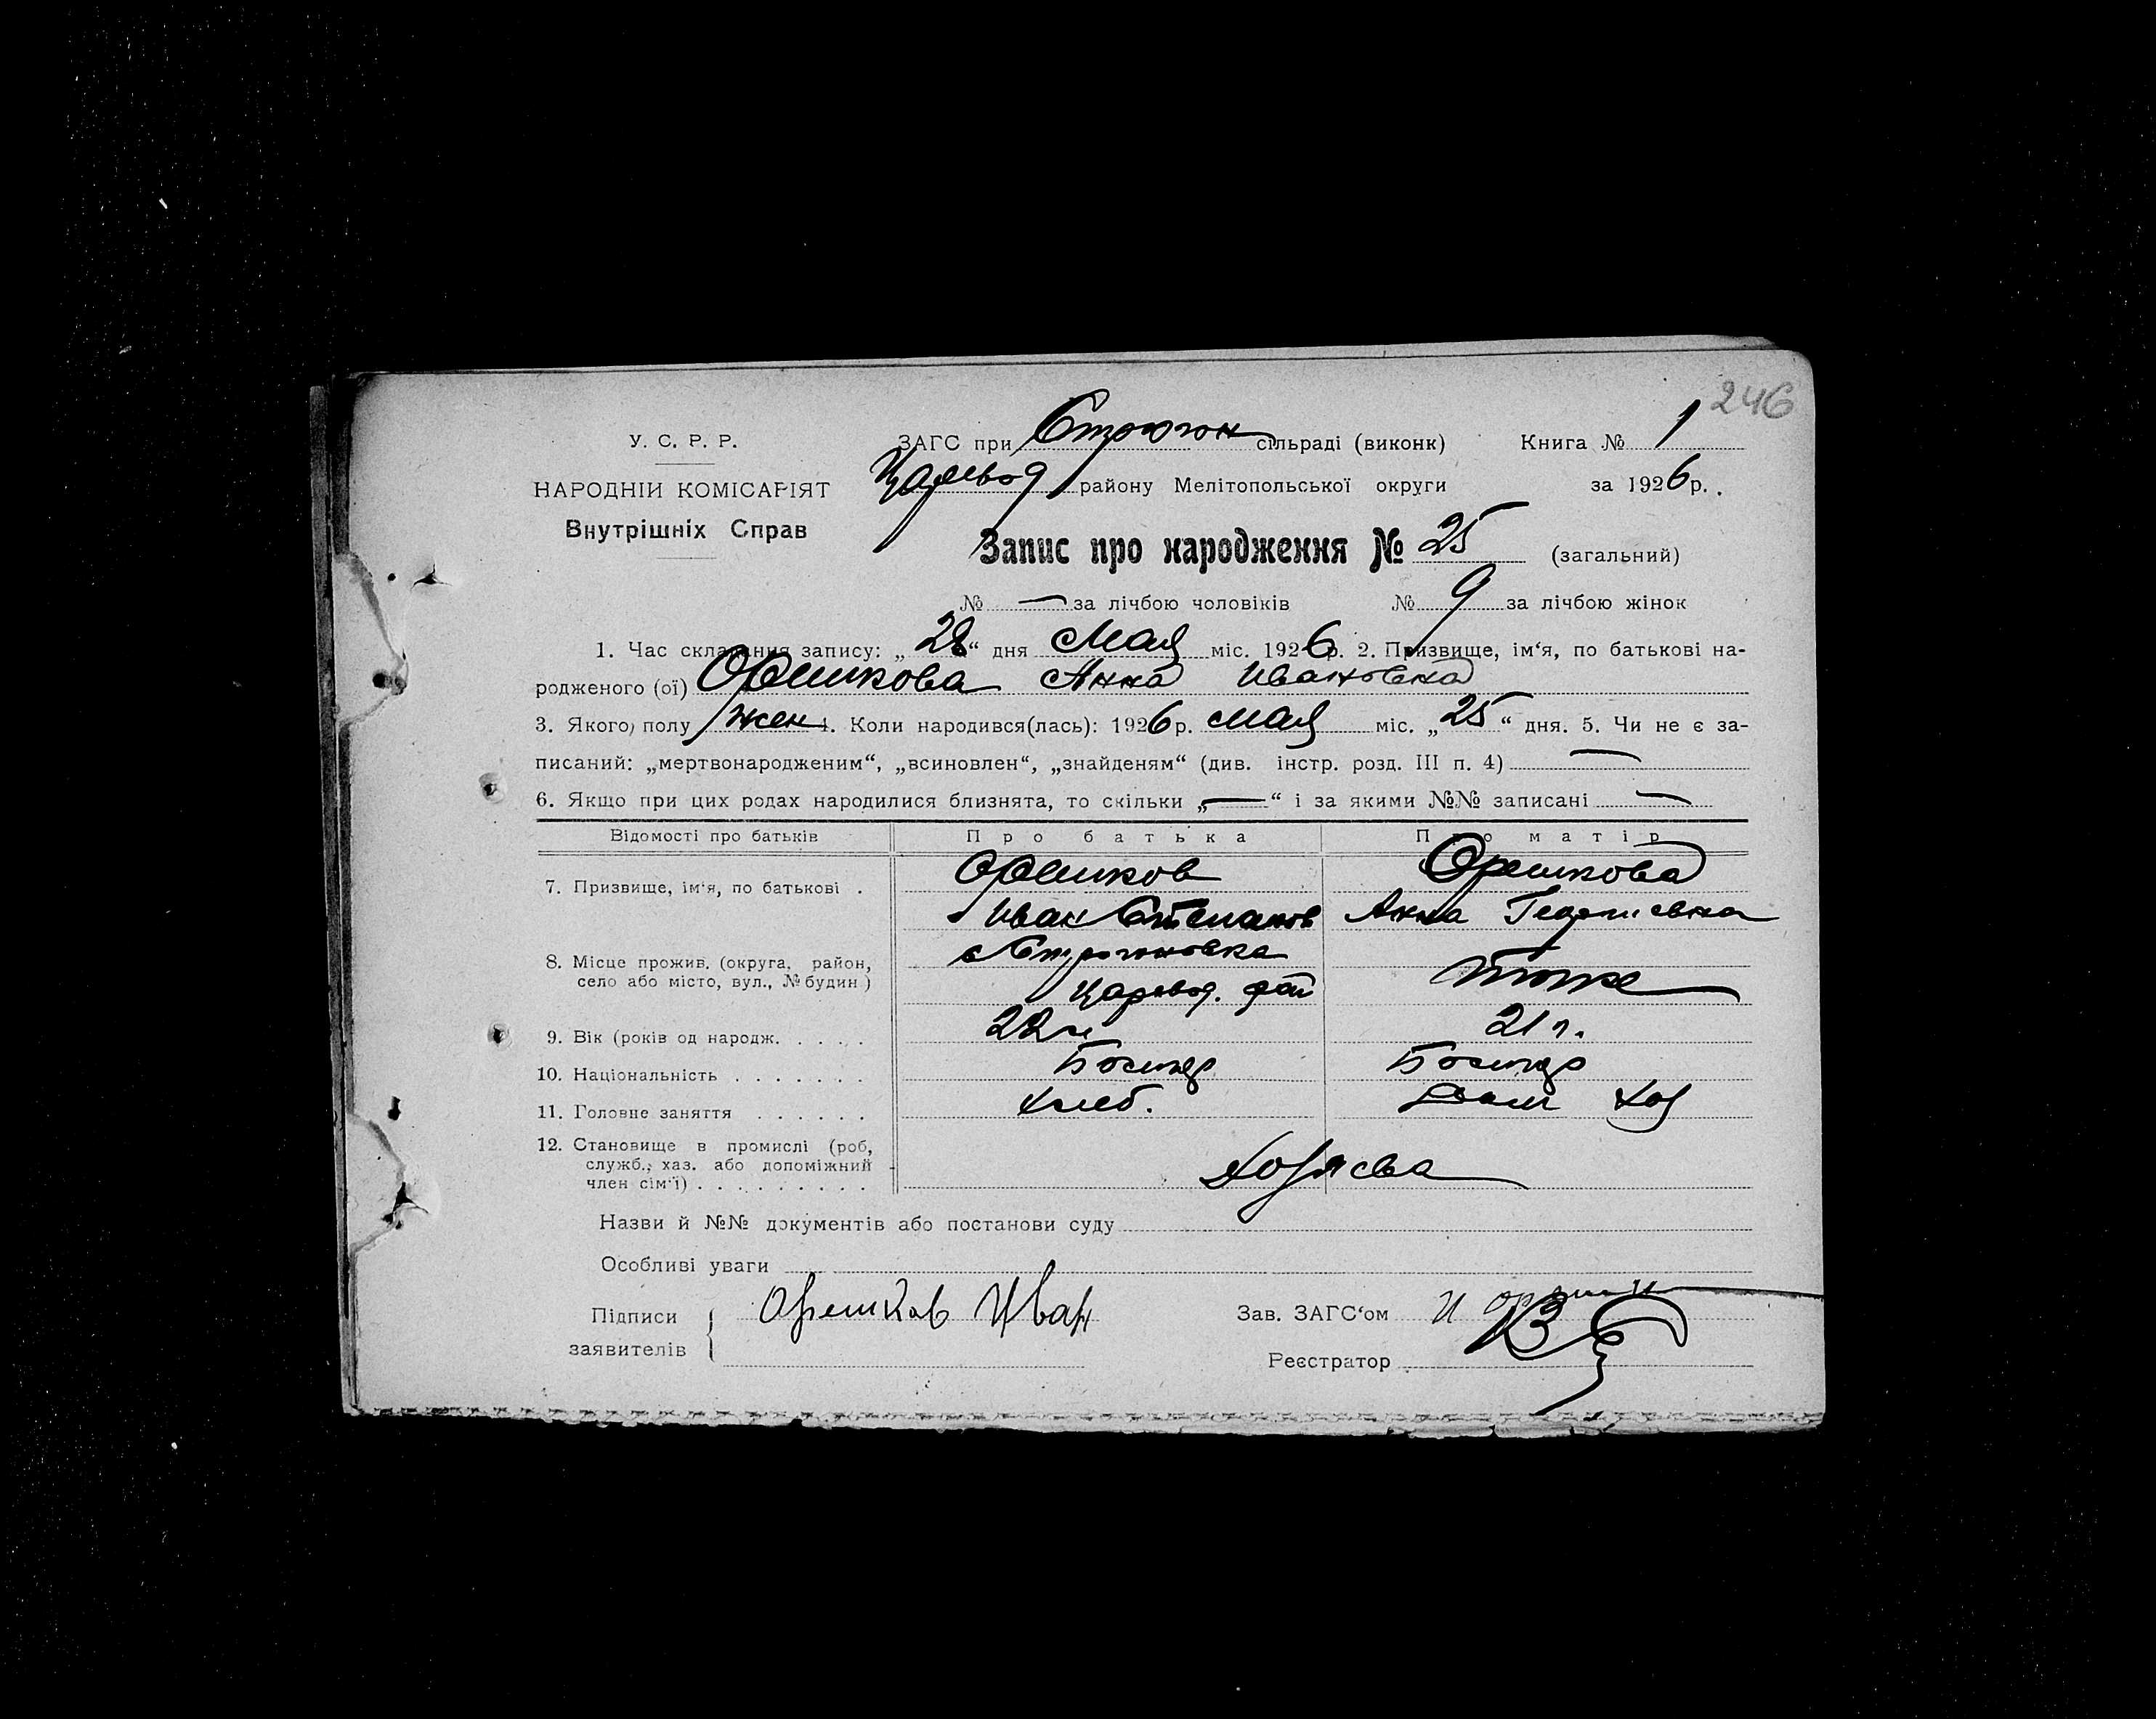 246
У. С. Р. Р. ЗАГС при Строгон сільраді (виконк) Книга № 1
НАРОДНІЙ КОМІСАРІЯТ Царевод району Мелітопольської округи за 1926 р.
Внутрішніх Справ
Запис про народження № 25 (загальний)
№ — за лічбою чоловіків № 9 за лічбою жінок
1. Час складання запису: „28“ дня Мая міс. 1926 р. 2. Призвище, ім‘я, по батькові на-
родженого (ої) Орешкова Анна Ивановна
3. Якого полу жен 4. Коли народився(лась): 1926 р. мая міс. „25“ дня. 5. Чи не є за-
писаний: „мертвонародженим“, „всиновлен“, „знайденям“ (див. інстр. розд. III п. 4) —
6. Якщо при цих родах народилися близнята, то скільки „—“ і за якими №№ записані —
Відомості про батьків Про батька Про матір
7. Призвище, ім‘я, по батькові . Орешков Орешкова
Иван Степанов Анна Георгиевна
8. Місце прожив. (округа, район, с Строгоновка тоже
село або місто, вул., № будин.) Царевод. рай
9. Вік (років од народж. . . . . 22 л 21 л.
10. Національність . . . . . . . Болгар Болгар
11. Головне заняття . . . . . . хлеб. Дом хоз
12. Становище в промислі (роб,
служб., хаз. або допоміжний
член сім‘ї) . . . . . . . . . Хозяева
Назви й №№ документів або постанови суду
Особливі уваги
Підписи Орешков Иван Зав. ЗАГС‘ом
заявителів Реєстратор